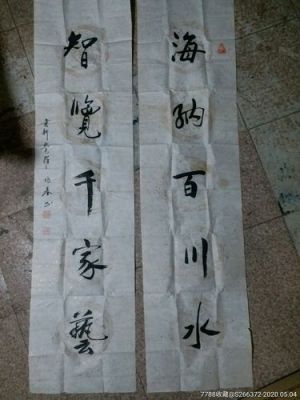 海纳百川水
智览千家艺
7788收藏@S266372 2020.05.04